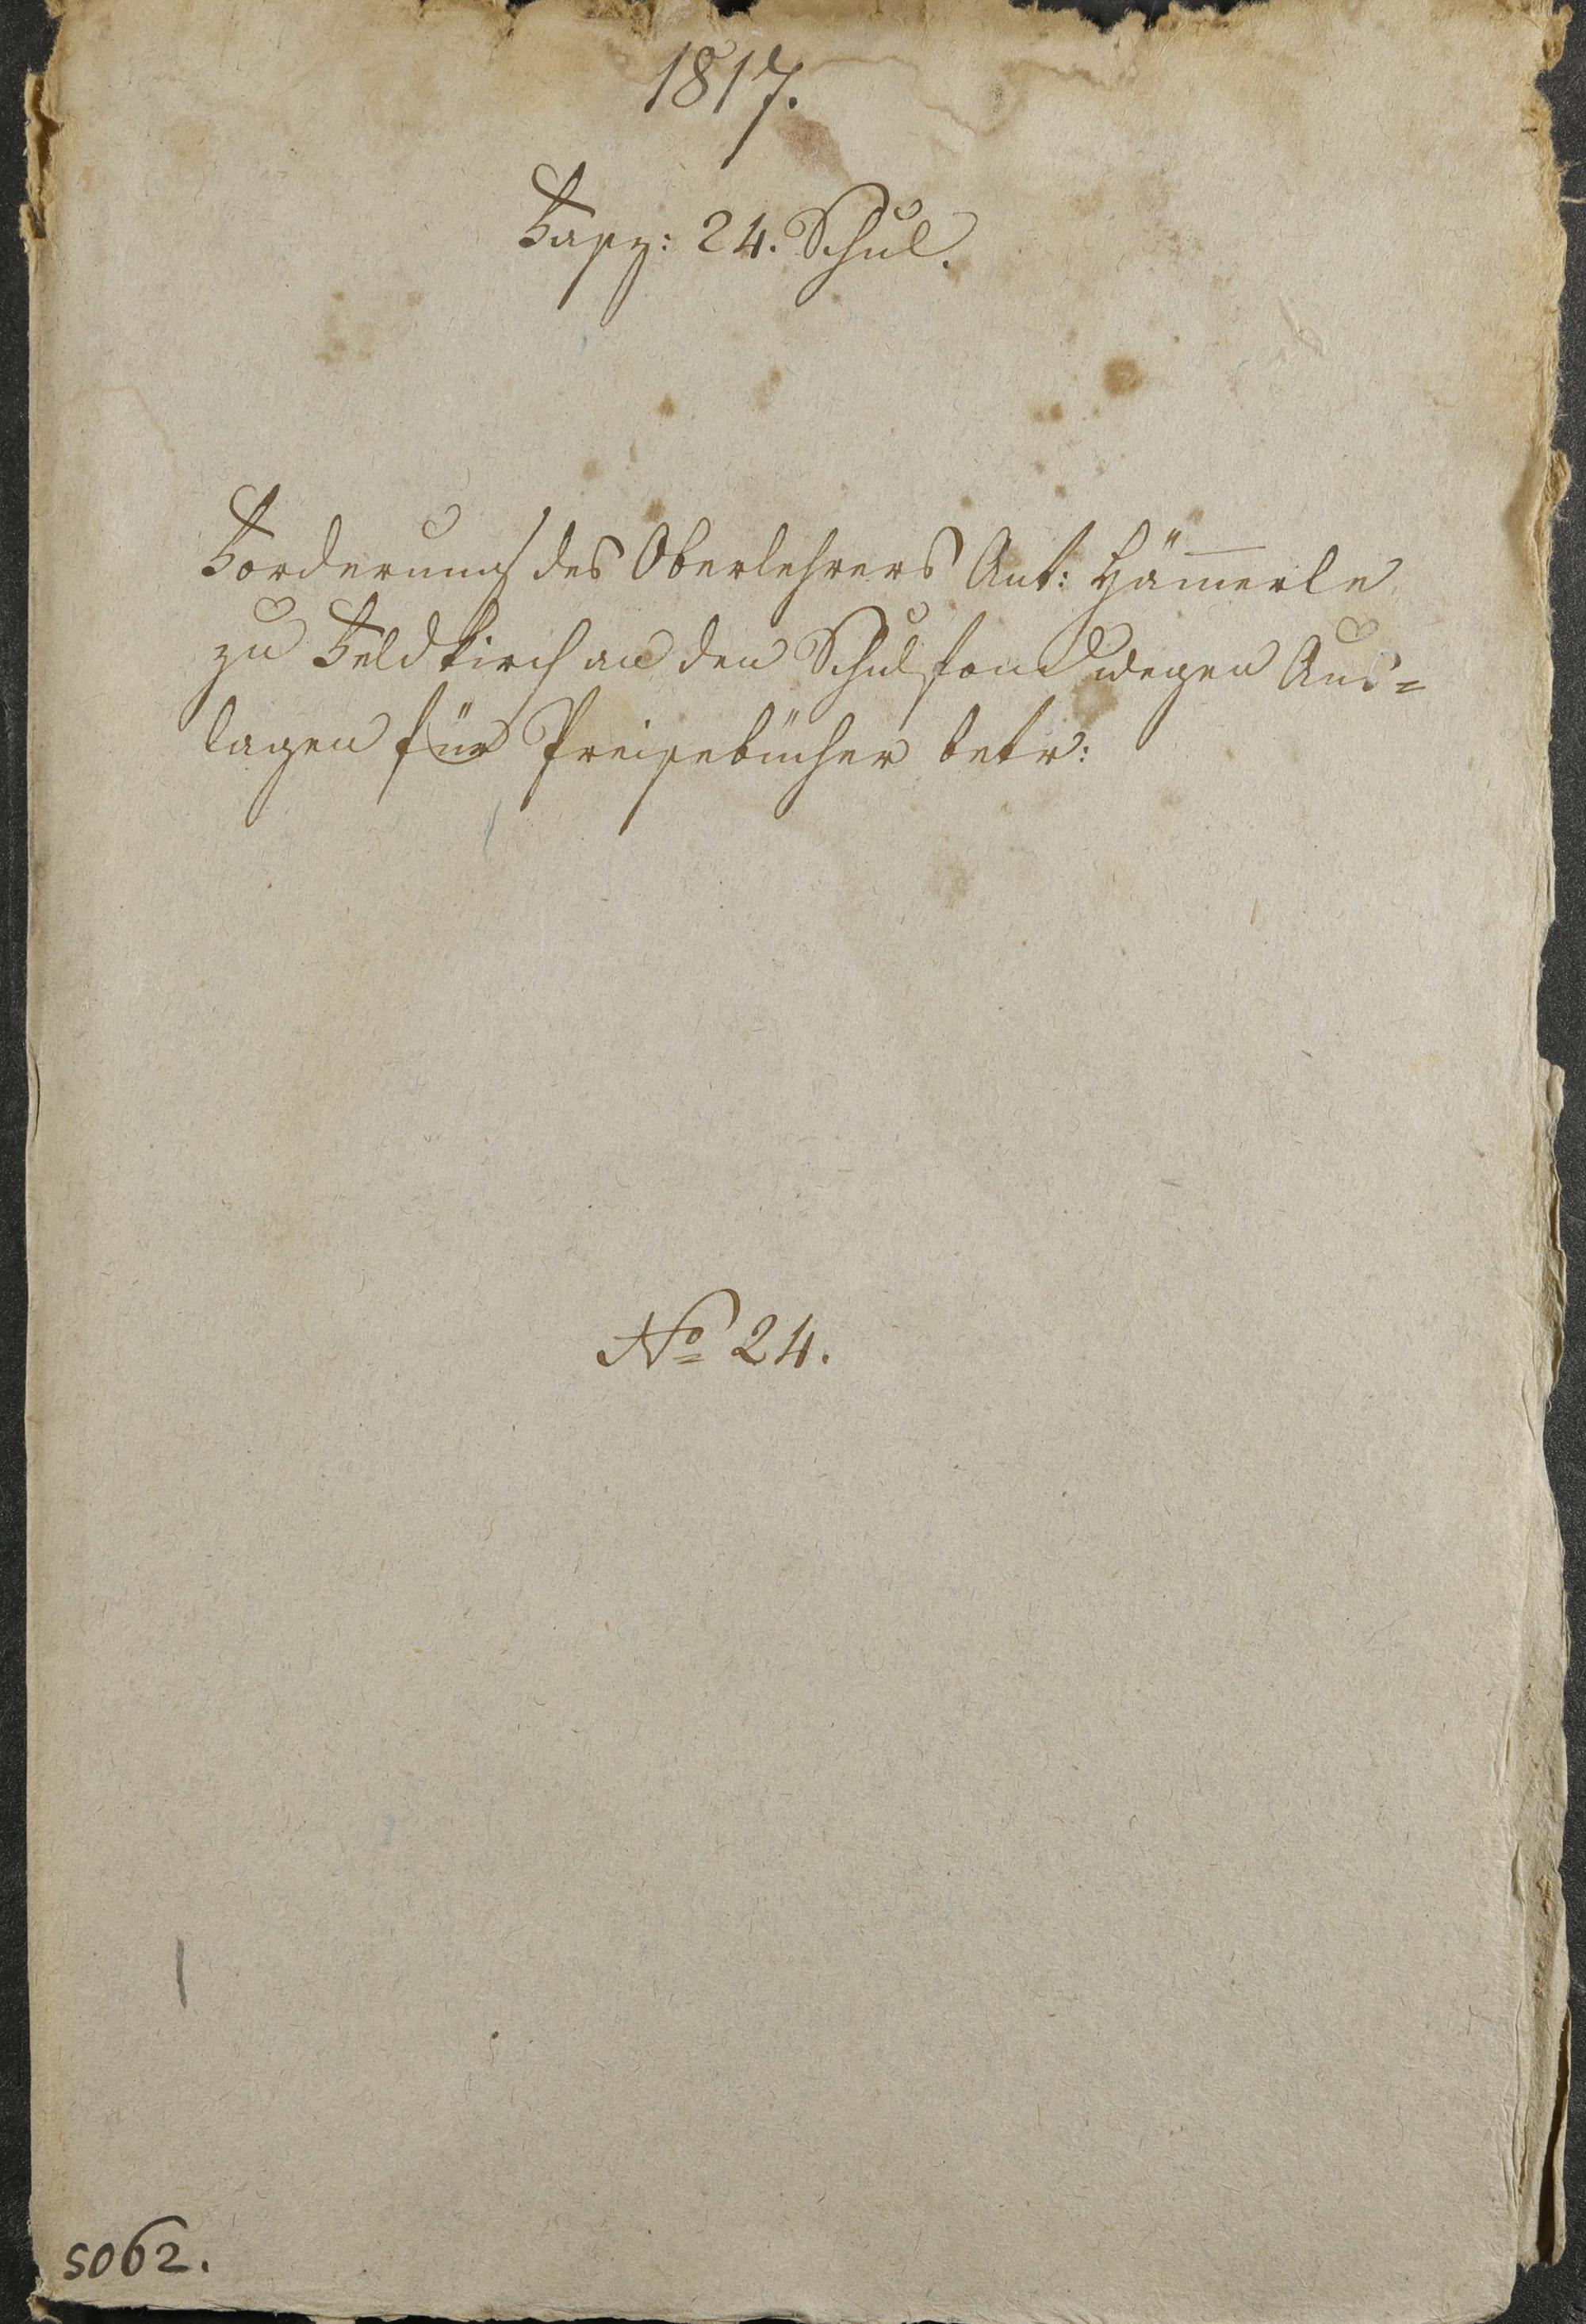 1817.
Fasz: 24. Schul.
Forderung des Oberlehrers Ant: Häm̅erle
zu Feldkirch an den Schulfond wegen Aus=
lagen für Preisebücher betr:
No 24.
5062.